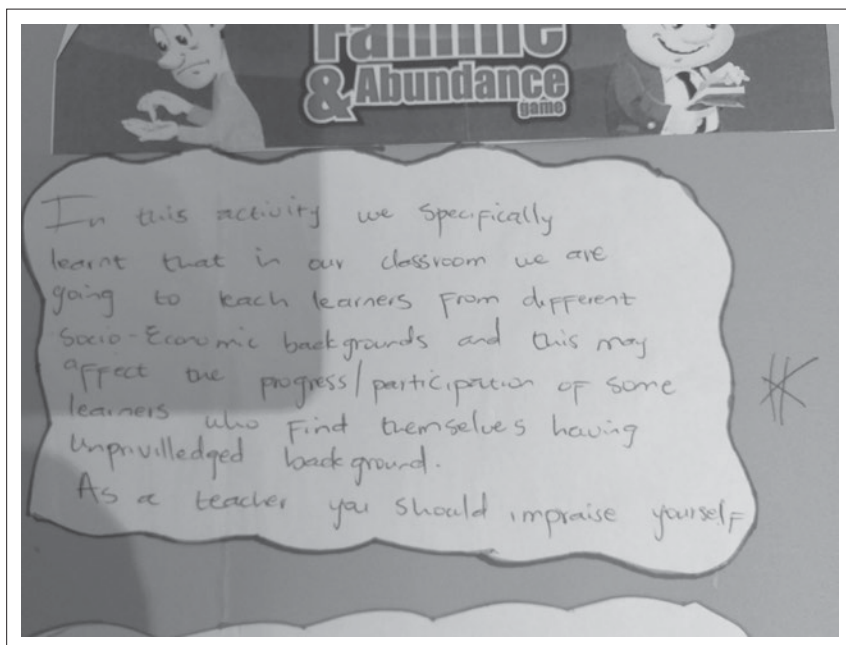 Famine
& Abundance
game
In this activity we specifically
learnt that in our classroom we are
going to teach learners from different
Socio-Economic backgrounds and this may
affect the progress/participation of some
learners who find themselves having
Unprivilledged background.
As a teacher you should impraise yourself